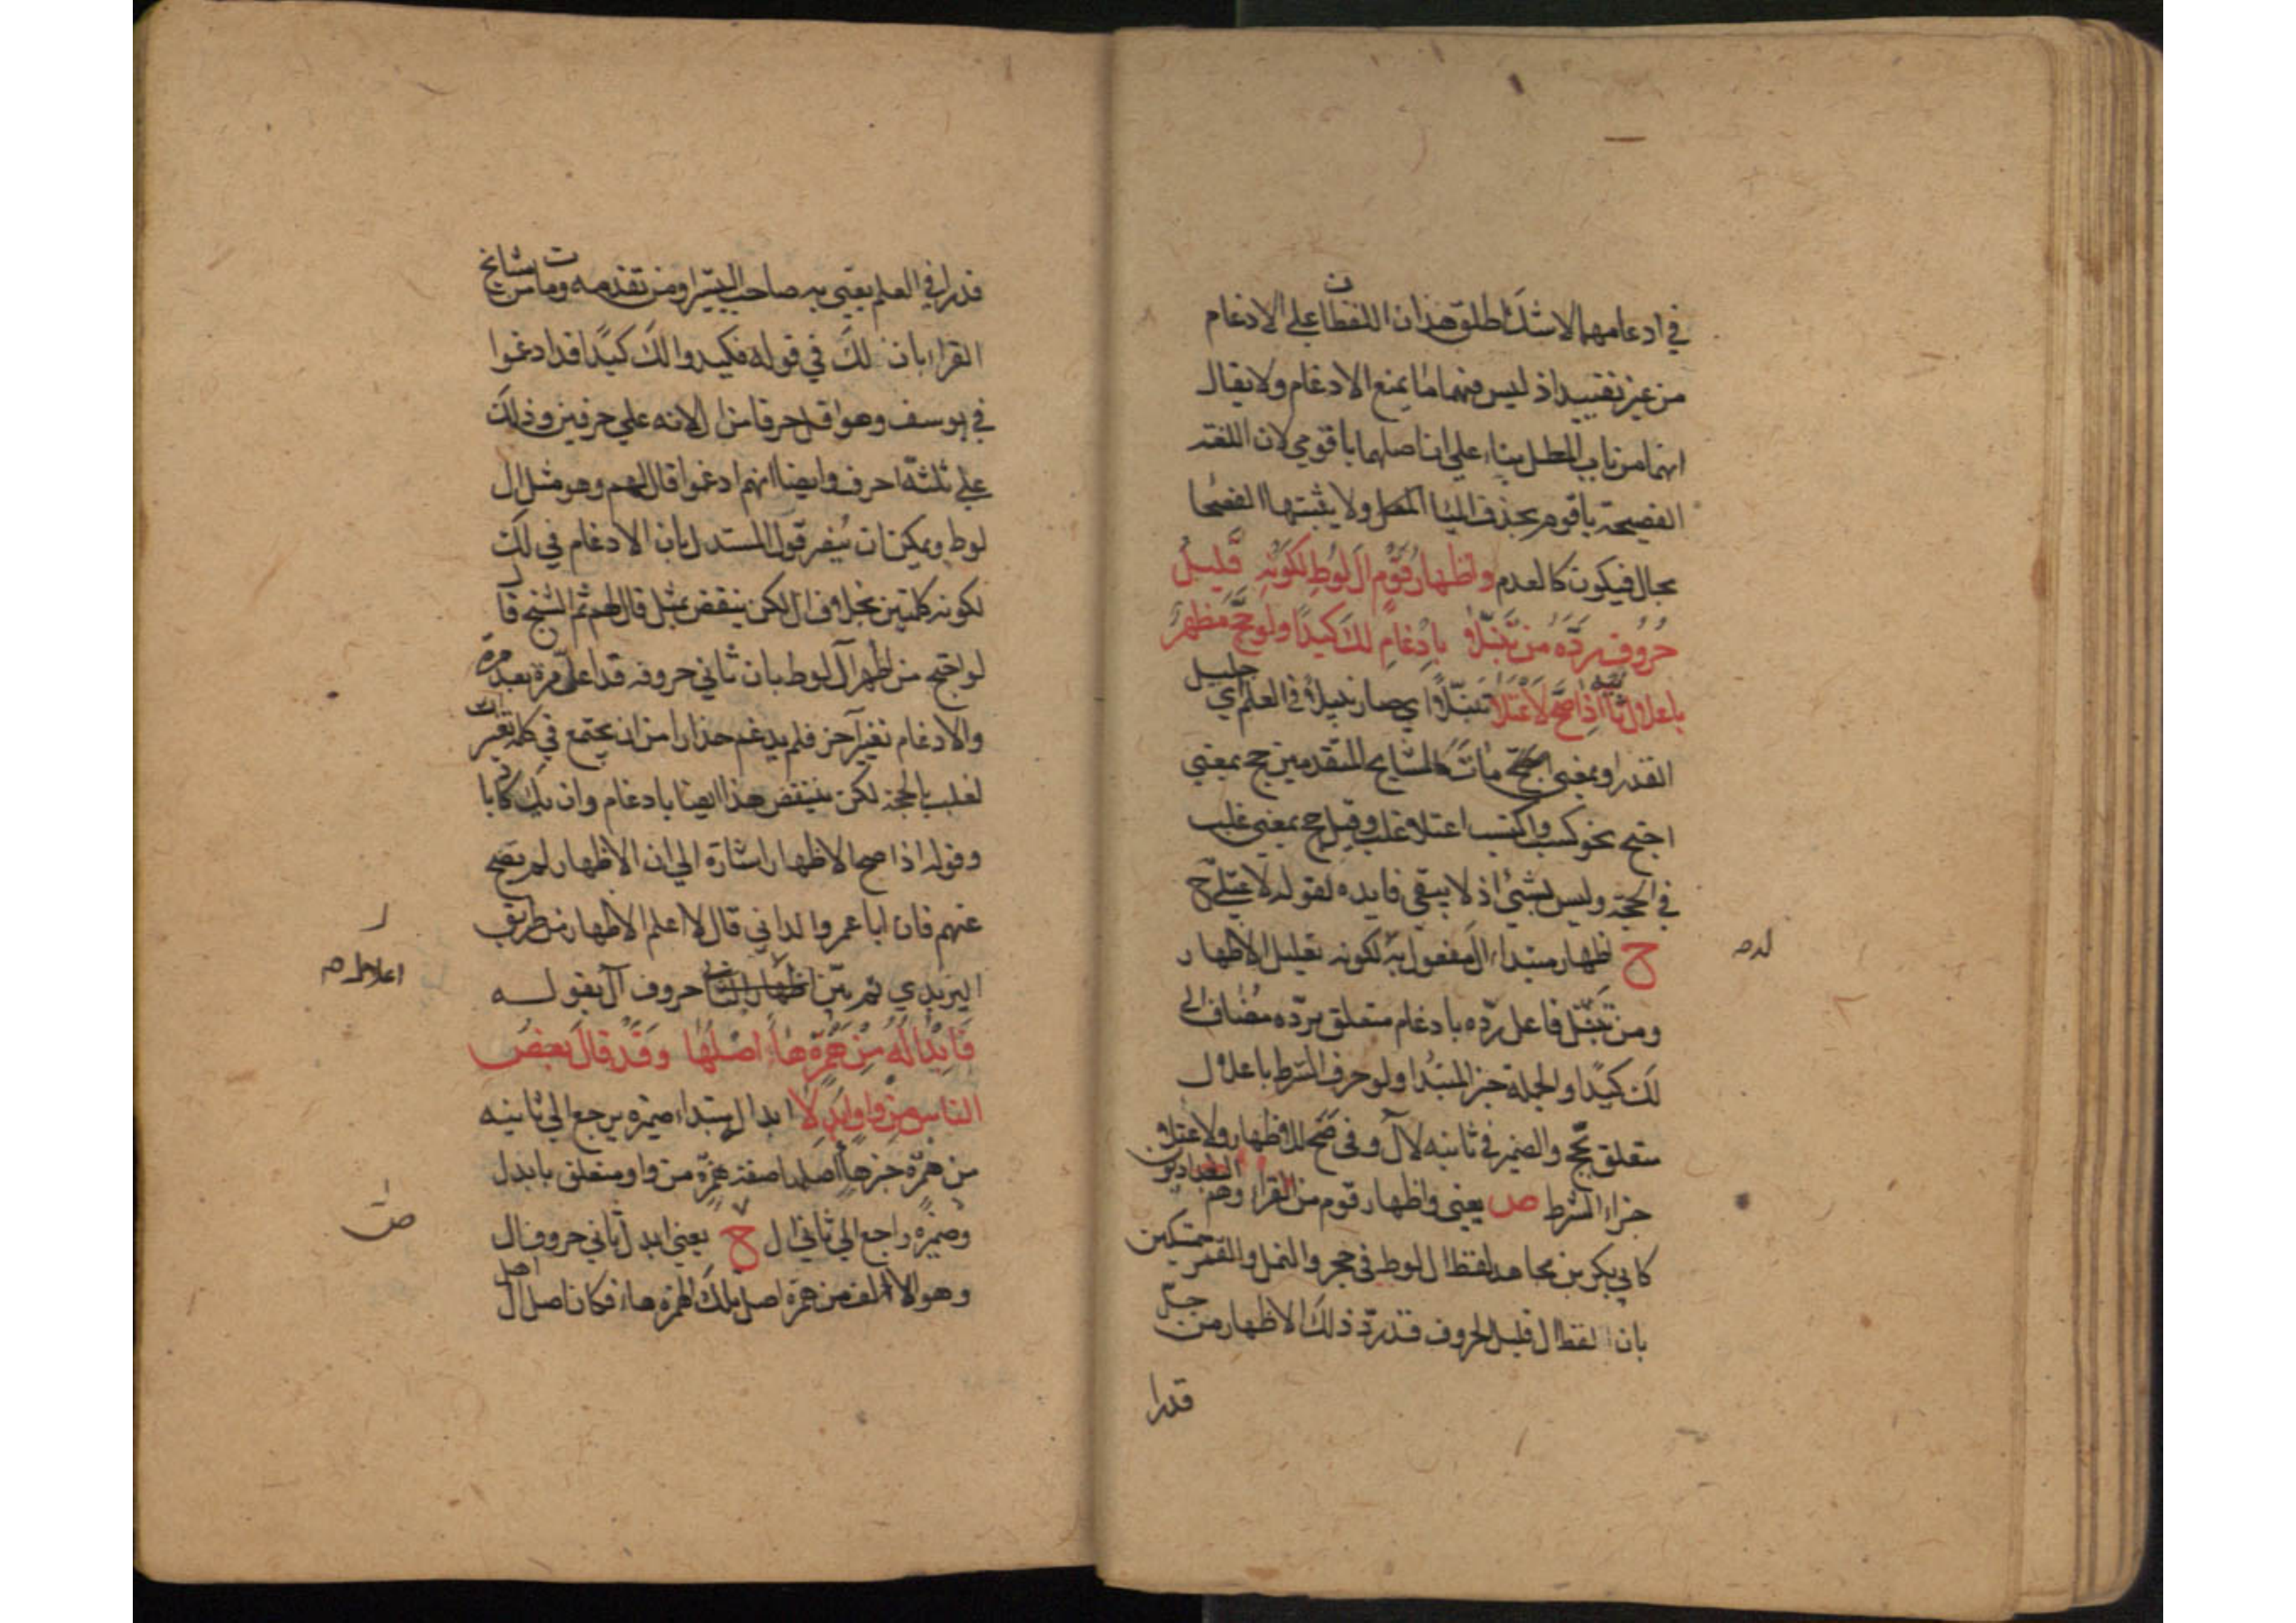 في ادعامهما لاشك اطلق هذان اللفظان على الادغام
من غير تقييد اذ ليس فيهما ما يمنع الادغام ولا يقال
انهما من باب المطل بناء على ان اصلهما ياقومي لان اللغة
الفصيحة ياقوم بحذف اليا ولا يثبتها الفصحا
بحال فيكون كالعدم واظهار قوم ال لوط لكونه قليل
حروف رده من تنبلا بادغام لك كيدا ولو حج مظهر
باعلال ثانيه اذا صح لاعتلا تنبلا اي صار نبيلا في العلم اي جليل
القدر او بمعنى مات كالمشايخ المتقدمين حج بمعنى
احتج نحو كسب واكتسب اعتلا غلب وقيل حج بمعنى غلب
في الحجة وليس بشئ اذ لا يبقى فايده لقوله لاعتلى ح
ح اظهار مبتدا ال مفعول به لكونه تعليل الاظهار
لده
ومن تنبل فاعل رده بادغام متعلق برده مضاف الى
لك كيدا والجملة خبر المبتدا ولو حرف الشرط باعلال
متعلق بحج والضمير في ثانيه لآل وفي صح للاظهار ولاعتلا
جزاء الشرط ص يعني واظهار قوم من القراء وهم البغداديون
كابي بكر بن مجاهد لفظ ال لوط في حجر والنمل والقمر متمسكين
بان لفظ ال قليل الحروف قد رد ذلك الاظهار من جل
قدرا
قدرا في العلم يعني به صاحب التيسير ومن تقدمه ومات من مشايخ
القراء بان لك في قوله فيكيدوا لك كيدا قد ادغموا
في يوسف وهو اقل حرفا من ال لانه على حرفين وذلك
على ثلثة احرف وايضا انهم ادغموا قال لهم وهو مثل ال
لوط ويمكن ان ينصر قول المستدل بان الادغام في لك
لكونه كلمتين بخلاف ال لكن ينقض بمثل قال لهم ثم الشيخ قال
لو احتج من اظهر آل لوط بان ثاني حروفه قد اعل مرة بعد مرة
والادغام تغير آخر فلم يدغم حذارا من ان يجتمع في كلمة تغيرات
لغلب بالحجة لكن ينتقض هذا ايضا بادغام وان يك كاذبا
وقوله اذا صح الاظهار اشارة الى ان الاظهار لم يصح
عنهم فان ابا عمرو الداني قال لا اعلم الاظهار من طريق
اليزيدي ثم بين حروف آل بقوله
اعلال
فابداله من همزة هاء اصلها وقد قال بعض
الناس من واو ابدلا ابدال مبتدا ضميره يرجع الى ثانيه
من همزة خبر هاء اصلها صفة همزة من واو متعلق بابدل
وضميره راجع الى ثاني ال ح يعني ابدل ثاني حروف ال
وهو الالف من همزة اصل تلك الهمزة هاء فكان اصل ال اهل